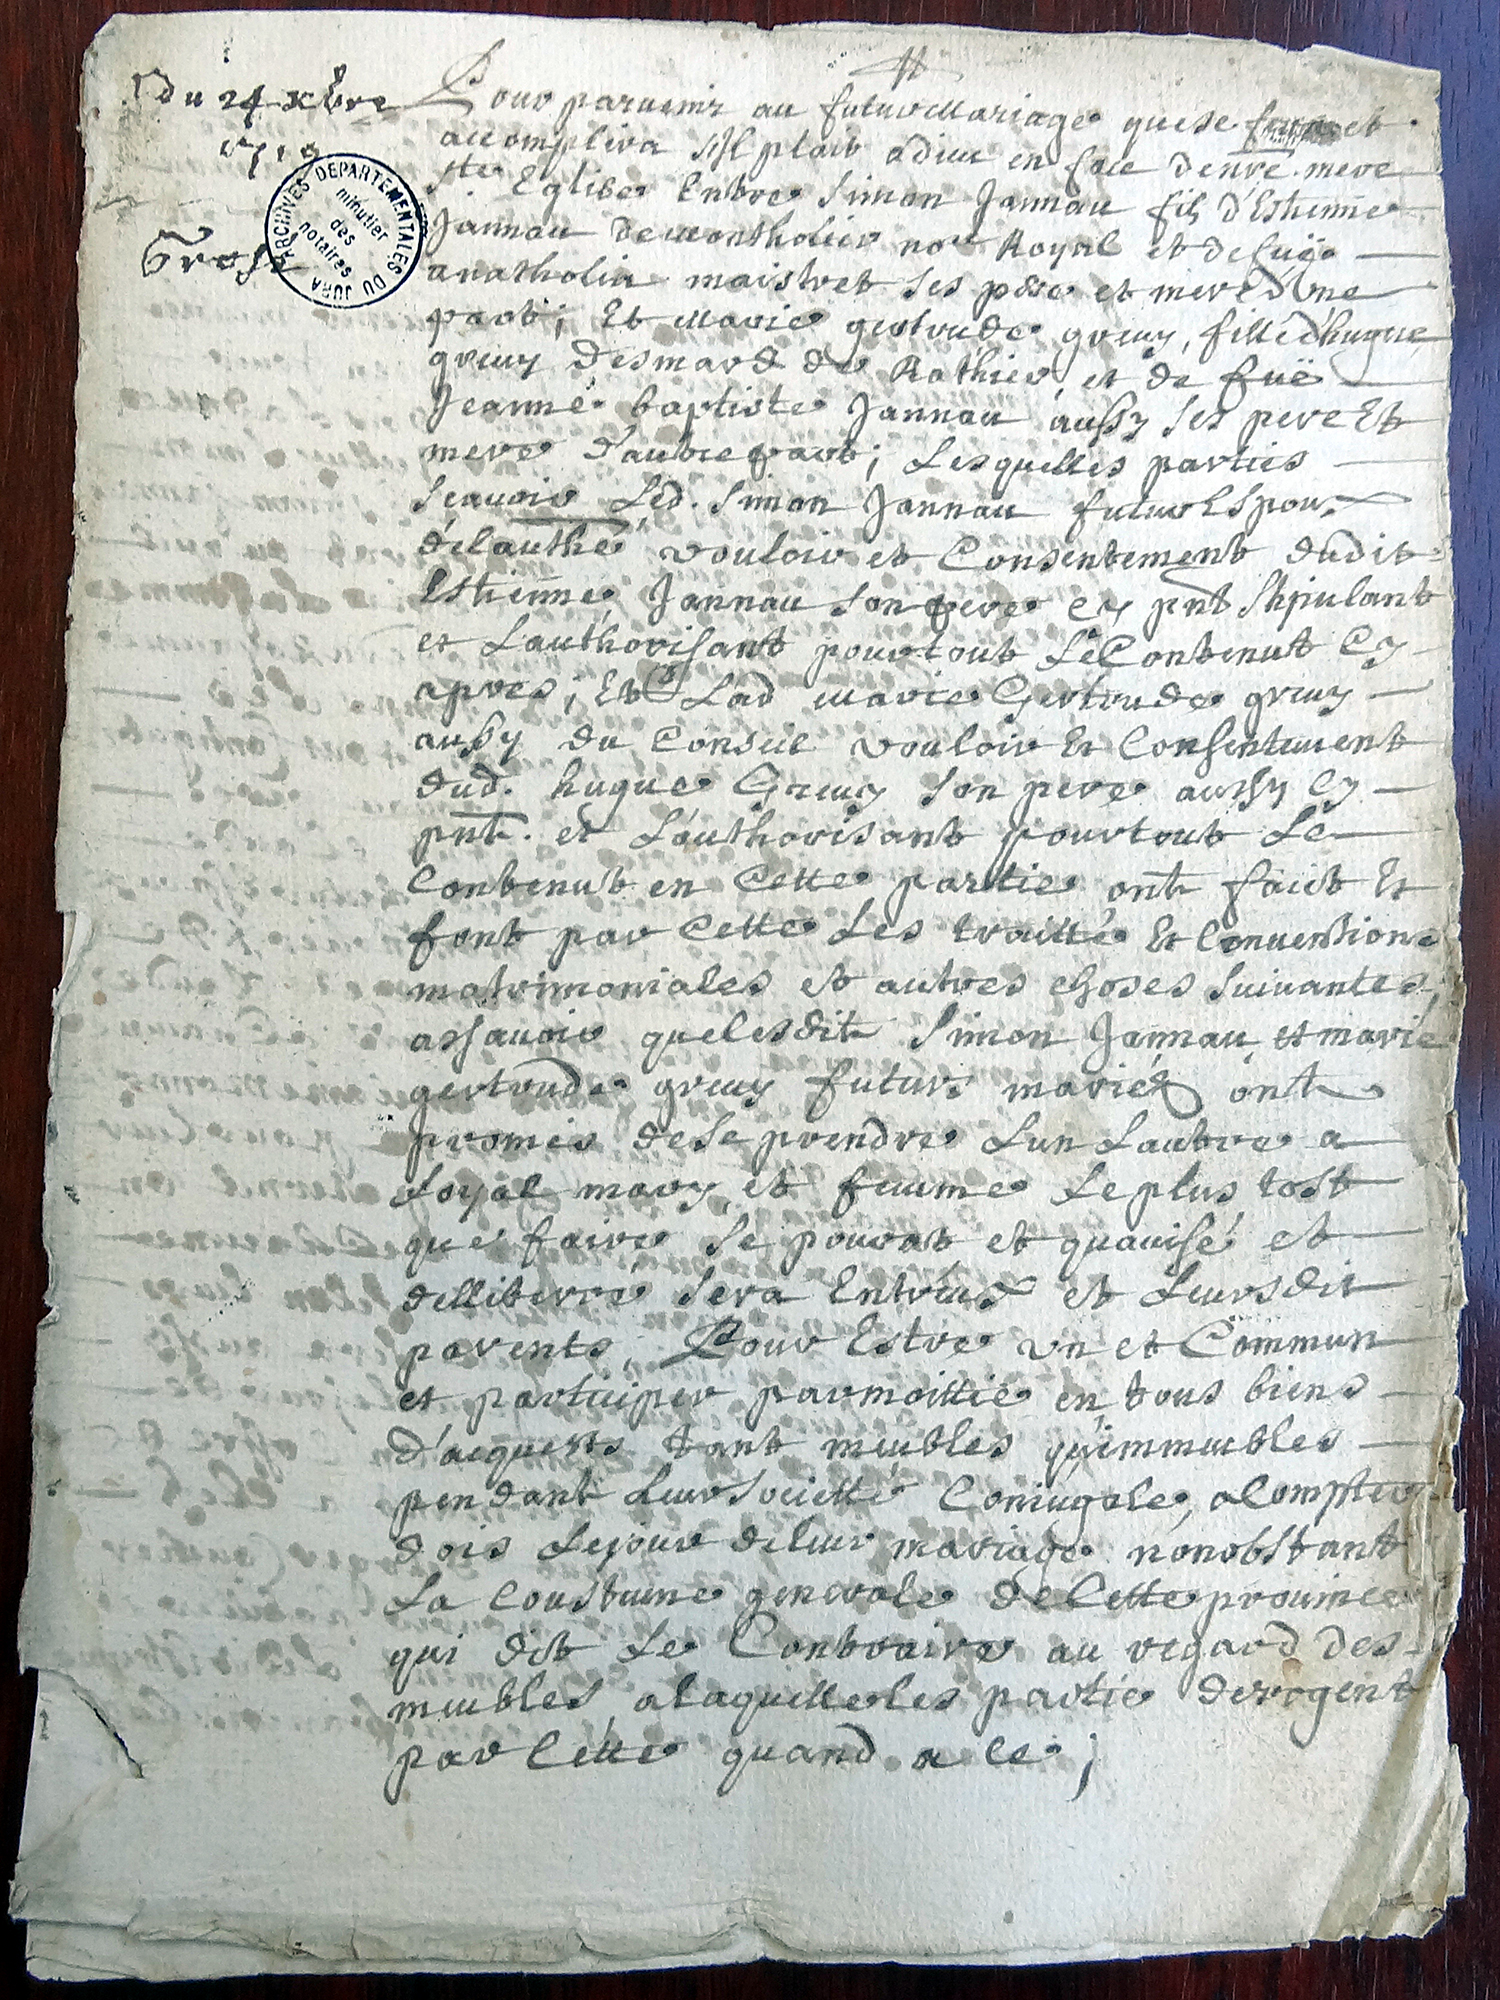 Du 24 xbre
1719
Grosse
ARCHIVES DEPARTEMENTALES DU JURA
minutier
des
notaires
Pour paruenir au futur Mariage qui se fera et
accomplira s'Jl plait a dieu en face de nre. mere
Ste Eglise Entre Simon Jannau fils d'Estienne
Jannau de montholier nore Royal et de fuë
anatholia maistret ses pere et mere d'Vne
part; Et Marie gertrude greuy, fille d'hugue
greuy desmard de Rothier et de fuë
Jeanne baptiste Jannau aussy ses pere Et
mere d'autre part; Lesquelles parties
scauoir Led. Simon Jannau futur Espoux
de lauthé vouloir et Consentement dudit
Estienne Jannau son pere cy pnt Stipulant
et Lauthorisant pour tout Le Contenut Cy
apres; Et Lad marie Gertrude greuy
aussy du Conseil vouloir Et Consentement
dud. hugue Greuy son pere aussy Cy
pnt. et Lauthorisant pour tout Le
Contenut en Cette partie ont faict Et
font par Cette Les traitté Et Conuentions
matrimoniales et autres choses suiuantes,
assauoir que lesdit Simon Jannau et marie
gertrude greuy futurs mariéz ont
promis de se prendre Lun Lautre a
Loyal mary et femme Le plus tost
que faire se pourat et quauisé et
delliberré sera Entreux et Leursdit
parents, Pour Estre vn et Commun
et participer par moittié en tous biens
d'acquests tant meubles qu'immeubles
pendant Leur Societté Coniugale, a Compter
dois Le jour de leur mariage nonobstant
La Coustume generale de Cette prouince
qui dit Le Contraire au regard des
meubles, a laquelle les partie derogent
par Cette quand a ce;